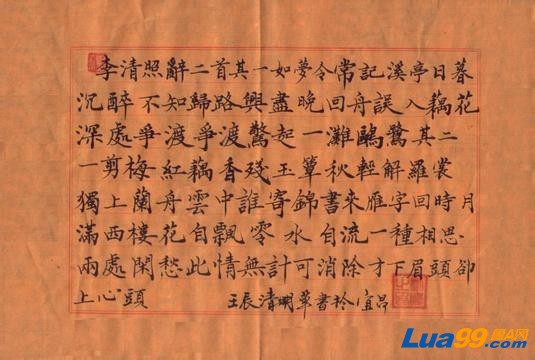 李清照辭二首其一如夢令常記溪亭日暮
沉醉不知歸路興盡晚回舟誤入藕花
深處爭渡爭渡驚起一灘鷗鷺其二
一剪梅紅藕香殘玉簟秋輕解羅裳
獨上蘭舟雲中誰寄錦書來雁字回時月
滿西樓花自飄零水自流一種相思
兩處閑愁此情無計可消除才下眉頭卻
上心頭 壬辰清明 書於宜昌
Lua99.com